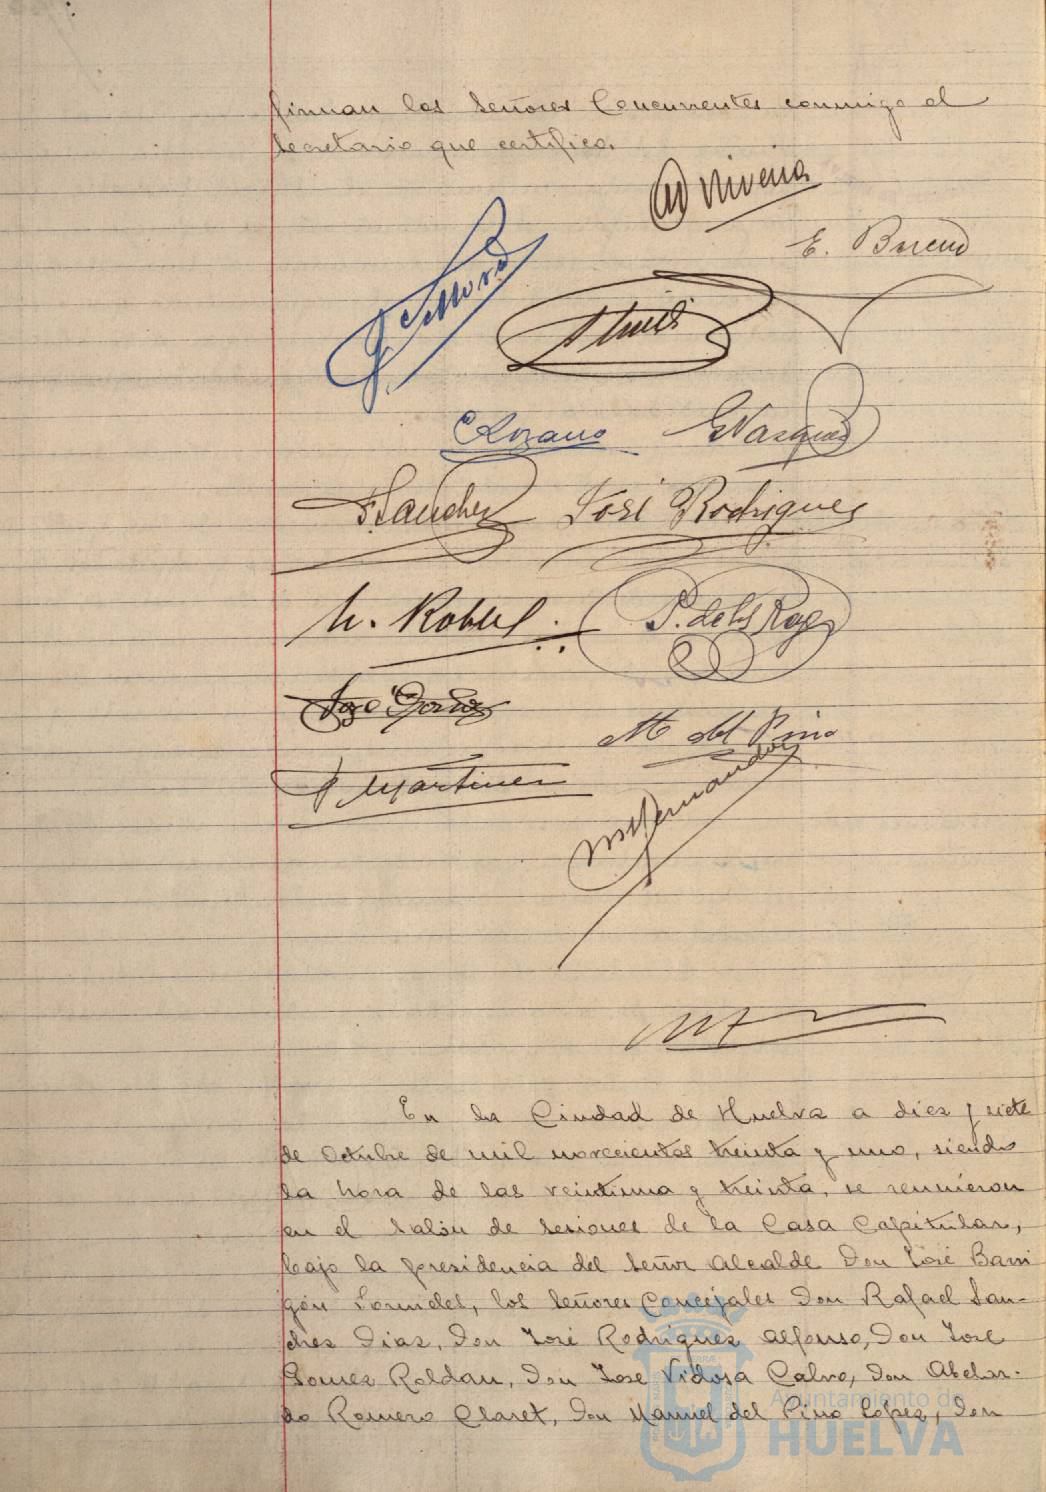 firman los Señores Concurrentes conmigo el
Secretario que certifico.
E. Bueno
J. Mora
C Lozano
E Vazquez
F. Sanchez José Rodriguez
M. del Pino
P Martinez
M Hernandez
En la Ciudad de Huelva a diez y siete
de Octubre de mil novecientos treinta y uno, siendo
la hora de las veintiuna y treinta, se reunieron
en el Salón de Sesiones de la Casa Capitular,
bajo la presidencia del Señor Alcalde Don José Barri
gón Fornieles, los Señores Concejales Don Rafael San-
chez Diaz, Don José Rodriguez Alfonso, Don José
Gomez Roldan, Don José Vidosa Calvo, Don Abelar-
do Romero Claret, Don Manuel del Pino Lopez, Don
Ayuntamiento de
HUELVA